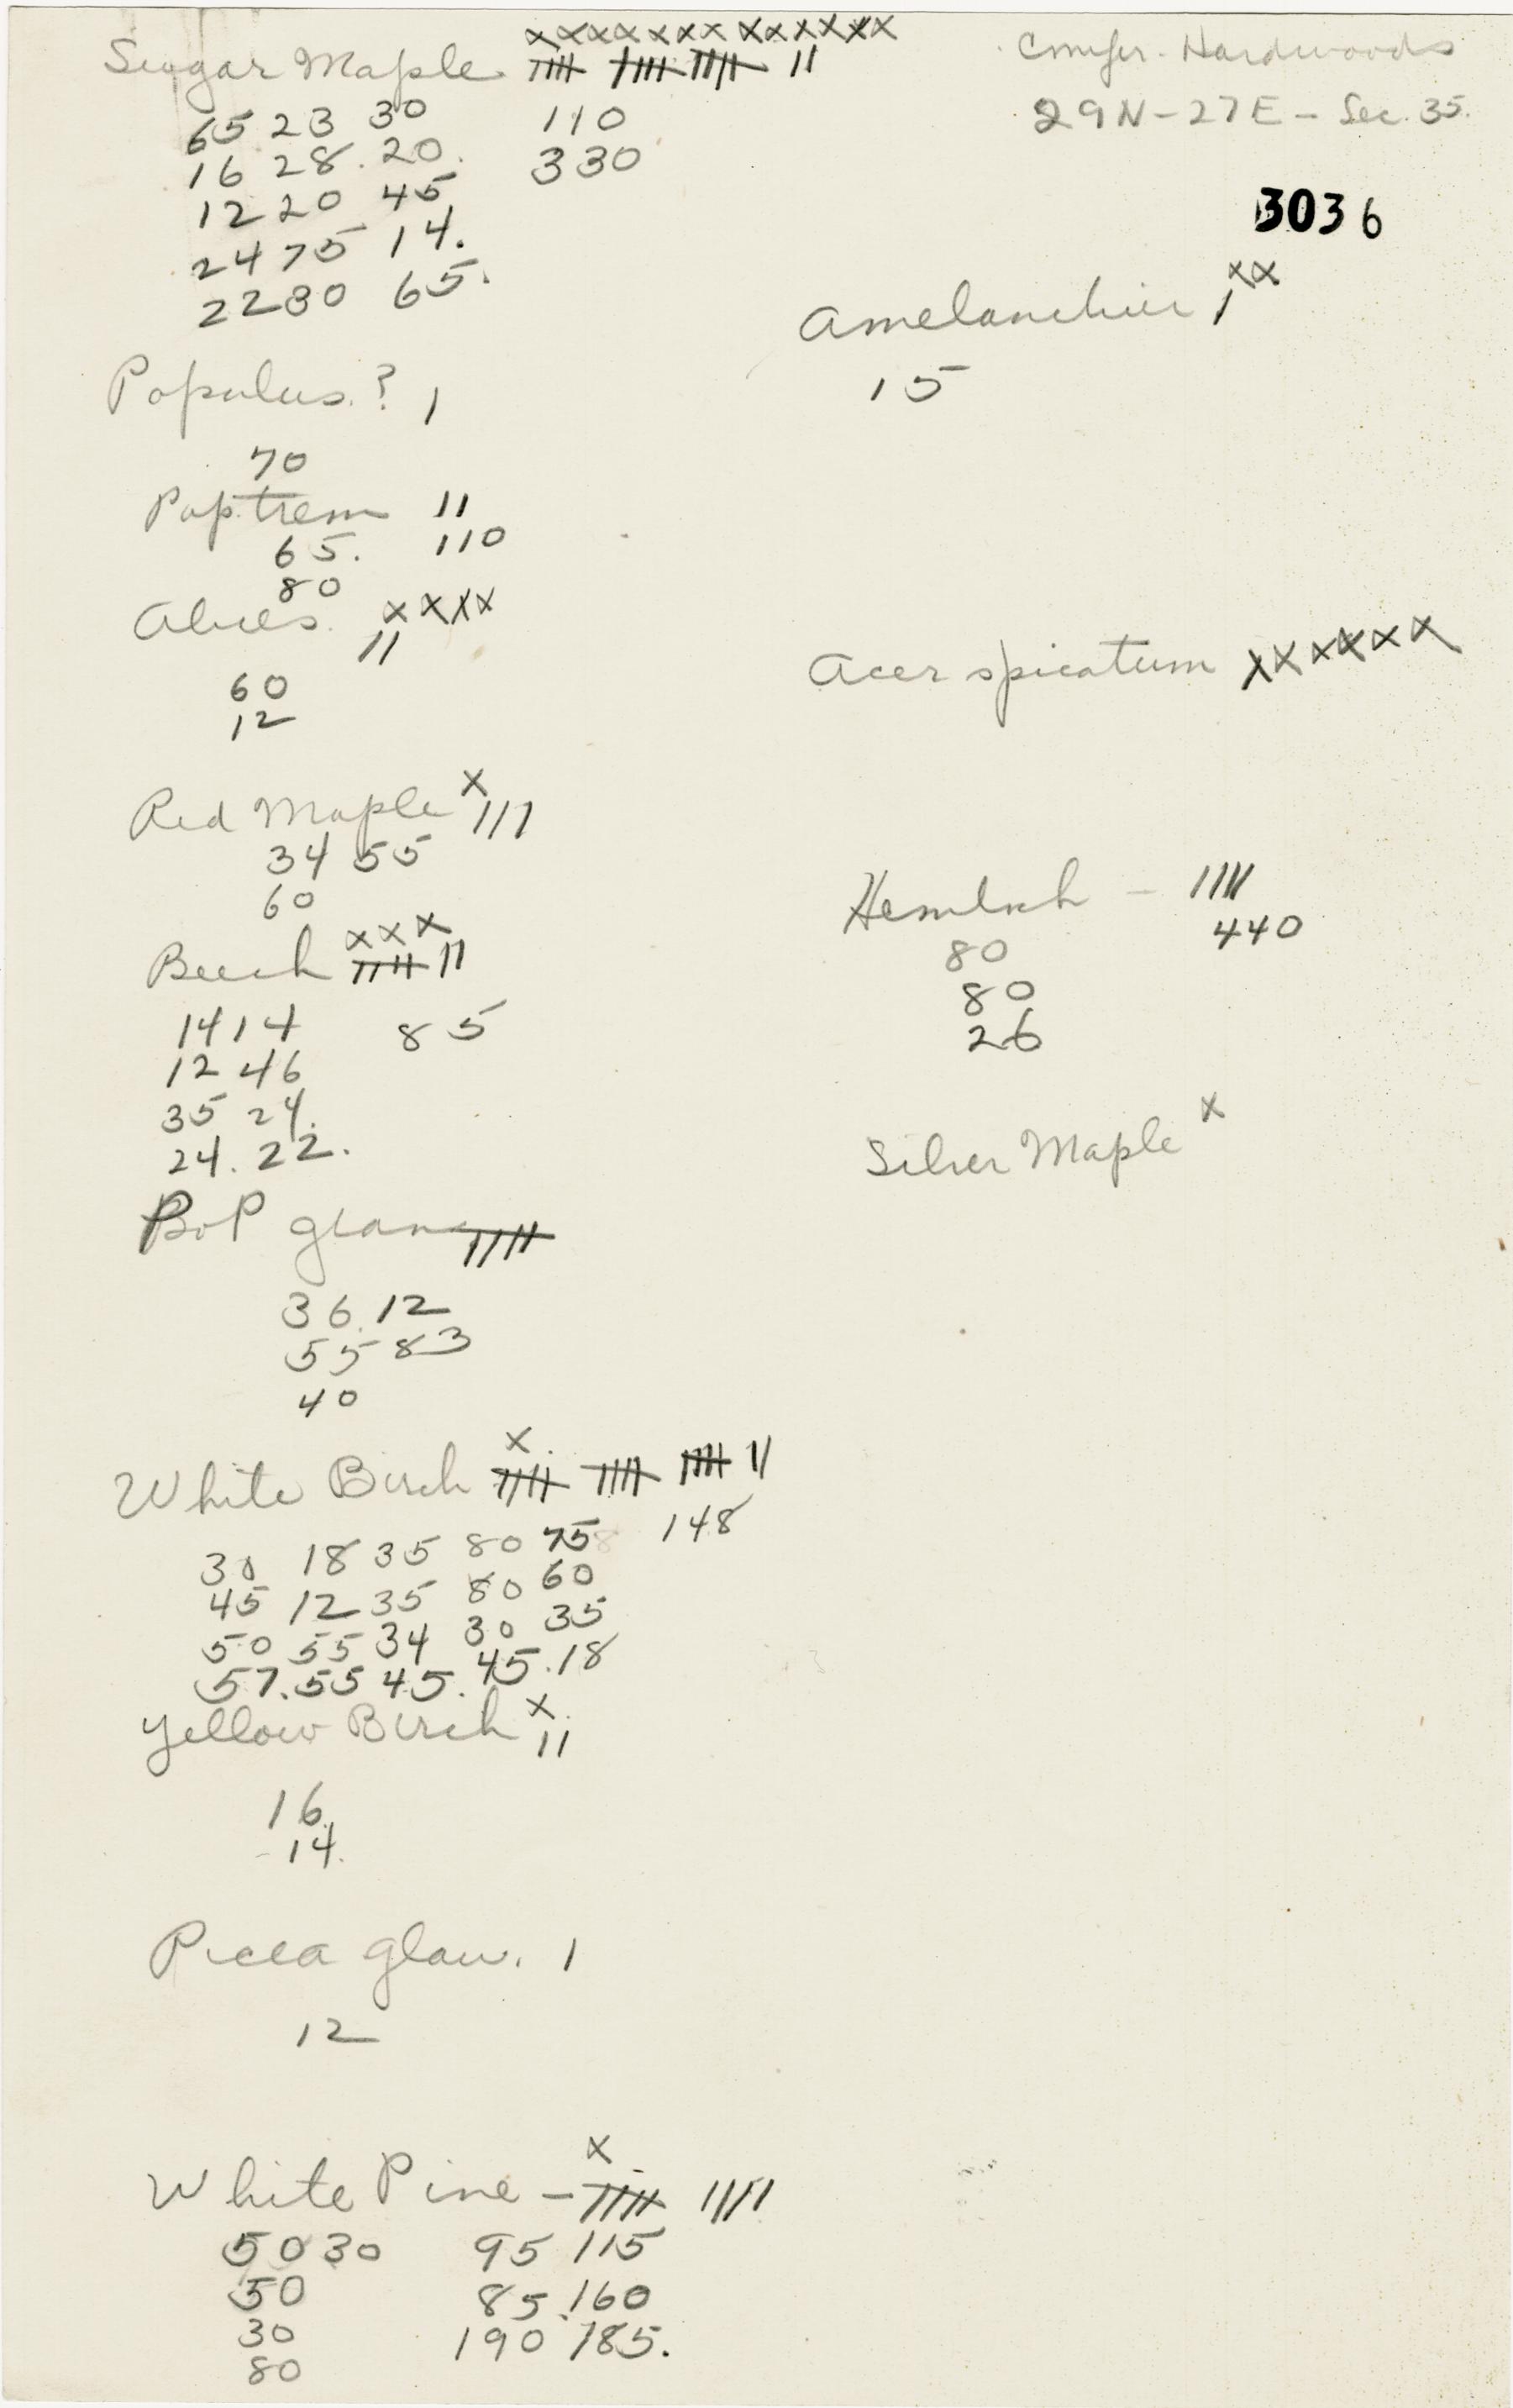 Conifer-Hardwoods
29N-27E-Sec. 35.
3036
Sugar Maple xxxxxxx xxxxxx
|||| |||| |||| ||
65 23 30 110
16 28. 20. 330
12 20 45
24 75 14.
22 30 65.
Populus? 1
70
Pop. trem 11
65. 110
80
Abies xxxx
11
60
12
Red Maple x 111
34 55
60
Beech xxx
|||| 11
14 14 85
12 46
35 24.
24. 22.
BoP gran ||||
36. 12
55 83
40
White Birch x
|||| |||| |||| 11
30 18 35 80 75 148
45 12 35 80 60
50 55 34 30 35
57. 55 45. 45. 18
Yellow Birch x
11
16.
14.
Picea glau. 1
12
White Pine - x
|||| ||||
50 30 95 115
50 85. 160
30 190 185.
80
Amelanchier 1 xx
15
Acer spicatum xxxxxx
Hemlock - ||||
80 440
80
26
Silver Maple x